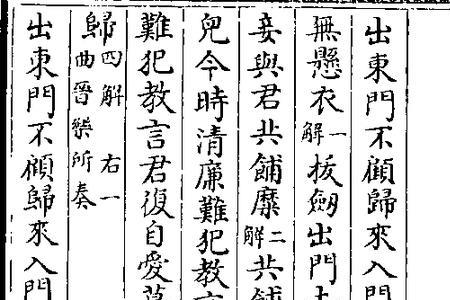 出東門不顧歸來入門
無懸衣一解拔劔出門
妾與君共餔糜二解共餔
兒今時清廉難犯教言
難犯教言君復自愛莫
歸四解右一曲晉樂所奏
出東門不顧歸來入門